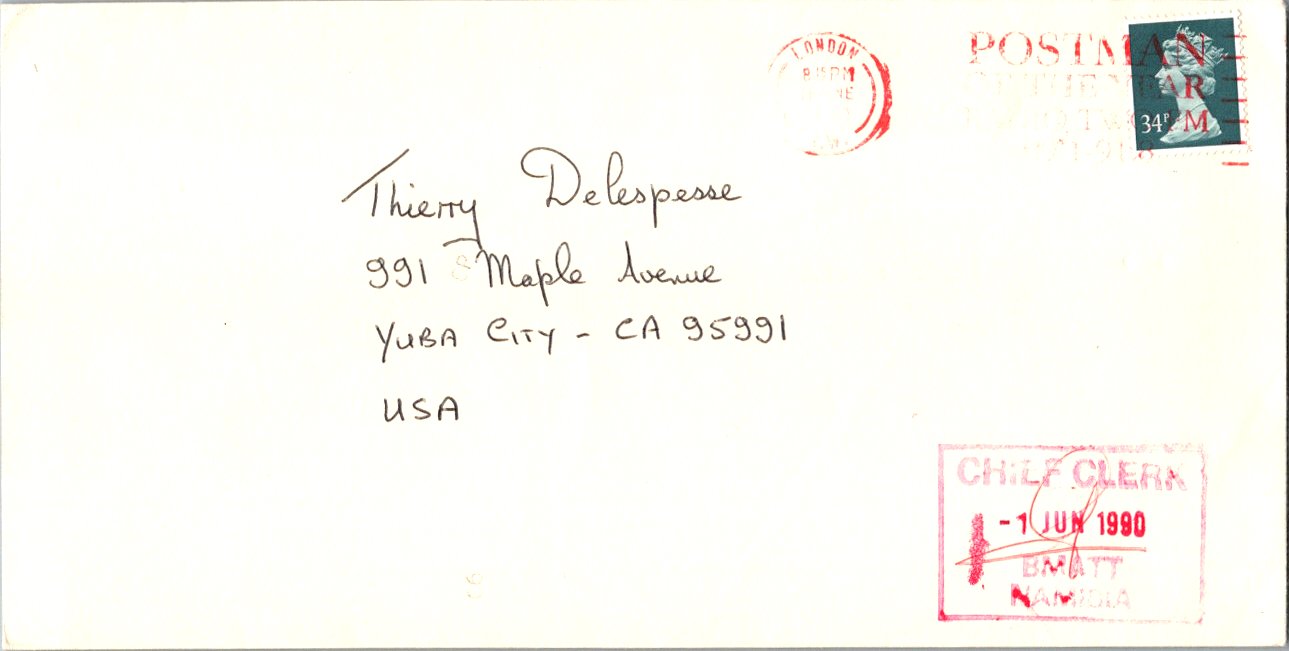 LONDON
POSTMAN
OF THE YEAR
34P
Thierry Delespesse
991 Maple Avenue
YUBA CITY - CA 95991
USA
CHIEF CLERK
-1 JUN 1990
BMATT
NAMIBIA